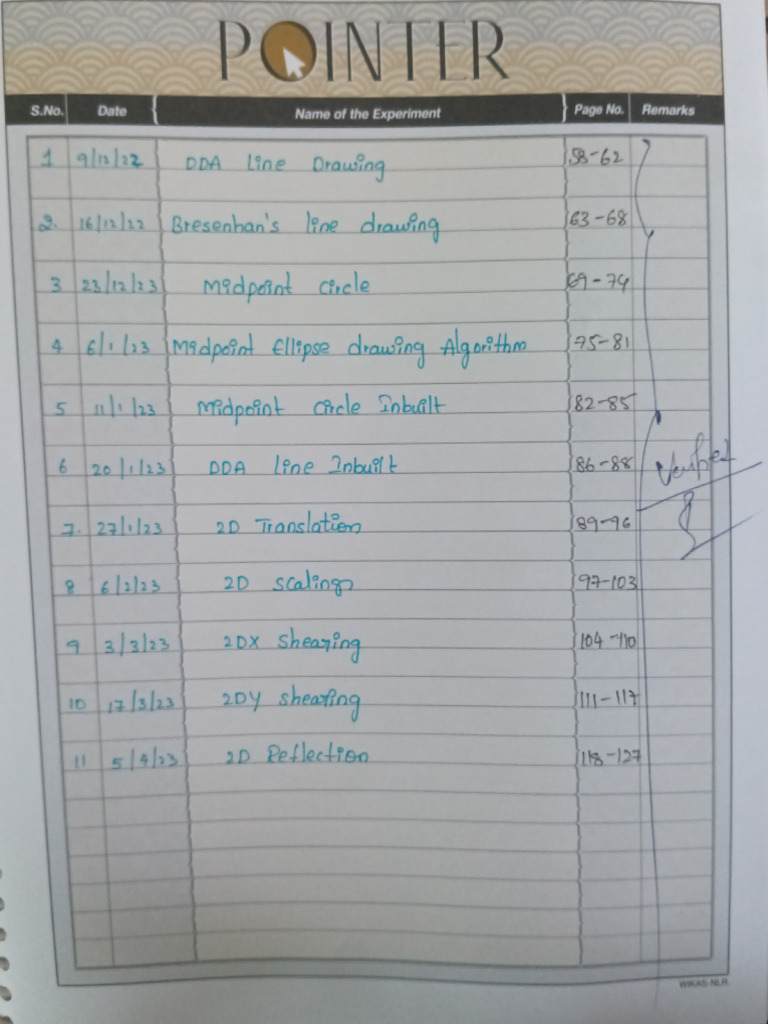 POINTER
S.No. Date Name of the Experiment Page No. Remarks
1 9/12/22 DDA Line Drawing 58-62
2. 16/12/22 Bresenhan's line drawing 63-68
3 23/12/23 Midpoint circle 69-74
4 6/1/23 Midpoint Ellipse drawing Algorithm 75-81
5 11/1/23 Midpoint circle Inbuilt 82-85
6 20/1/23 DDA line Inbuilt 86-88
Verified
7. 27/1/23 2D Translation 89-96
8 6/2/23 2D scaling 97-103
9 3/3/23 2DX Shearing 104-110
10 17/3/23 2DY shearing 111-117
11 5/4/23 2D Reflection 118-127
WIKAS-NLR